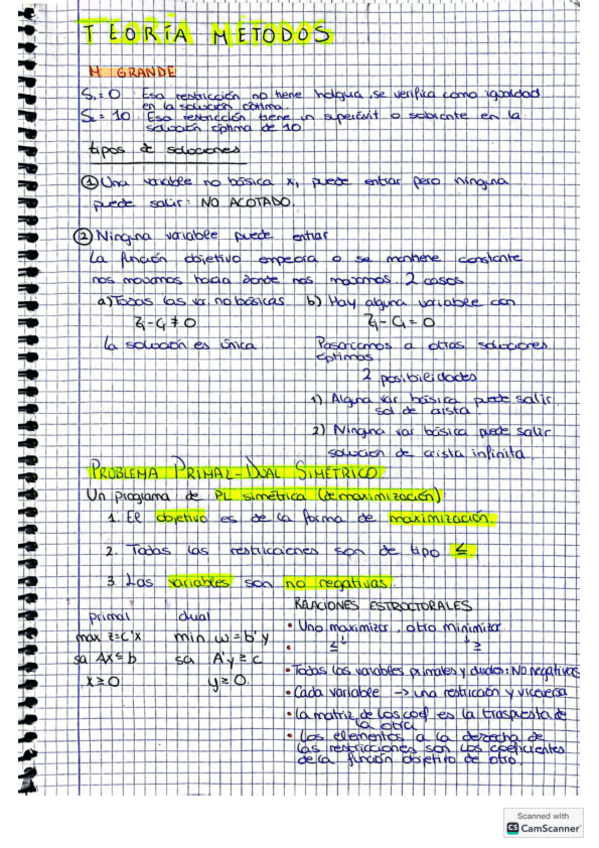 TEORÍA MÉTODOS
M GRANDE
S₁ = 0 Esa restricción no tiene holgura, se verifica como igualdad
en la solución óptima.
S₂ = 10 Esa restricción tiene un superávit o sobrante en la
solución óptima de 10
tipos de soluciones
① Una variable no básica x₁ puede entrar pero ninguna
puede salir: NO ACOTADO.
② Ninguna variable puede entrar
La función objetivo empeora o se mantiene constante
nos movamos hacia donde nos movamos. 2 casos
a) Todas las var no básicas
Zj - Cj ≠ 0
la solución es única
b) Hay alguna variable con
Zj - Cj = 0
Pasaríamos a otras soluciones
óptimas
2 posibilidades
1) Alguna var básica puede salir
sol de arista
2) Ninguna var básica puede salir
solución de arista infinita.
PROBLEMA PRIMAL-DUAL SIMÉTRICO
Un programa de PL simétrica (de maximización)
1. El objetivo es de la forma de maximización.
2. Todas las restricciones son de tipo ≤
3. Las variables son no negativas.
primal
max z=c'x
sa Ax≤b
x≥0
dual
min w=b'y
sa A'y≥c
y≥0.
RELACIONES ESTRUCTORALES
• Uno maximizar, otro minimizar
• ≤ ≥
• Todas las variables primales y duales: NO negativas
• Cada variable → una restricción y viceversa
• La matriz de los coef es la traspuesta de
la otra
• Los elementos a la derecha de
las restricciones son los coeficientes
de la función objetivo de otro.
Scanned with
CS CamScanner